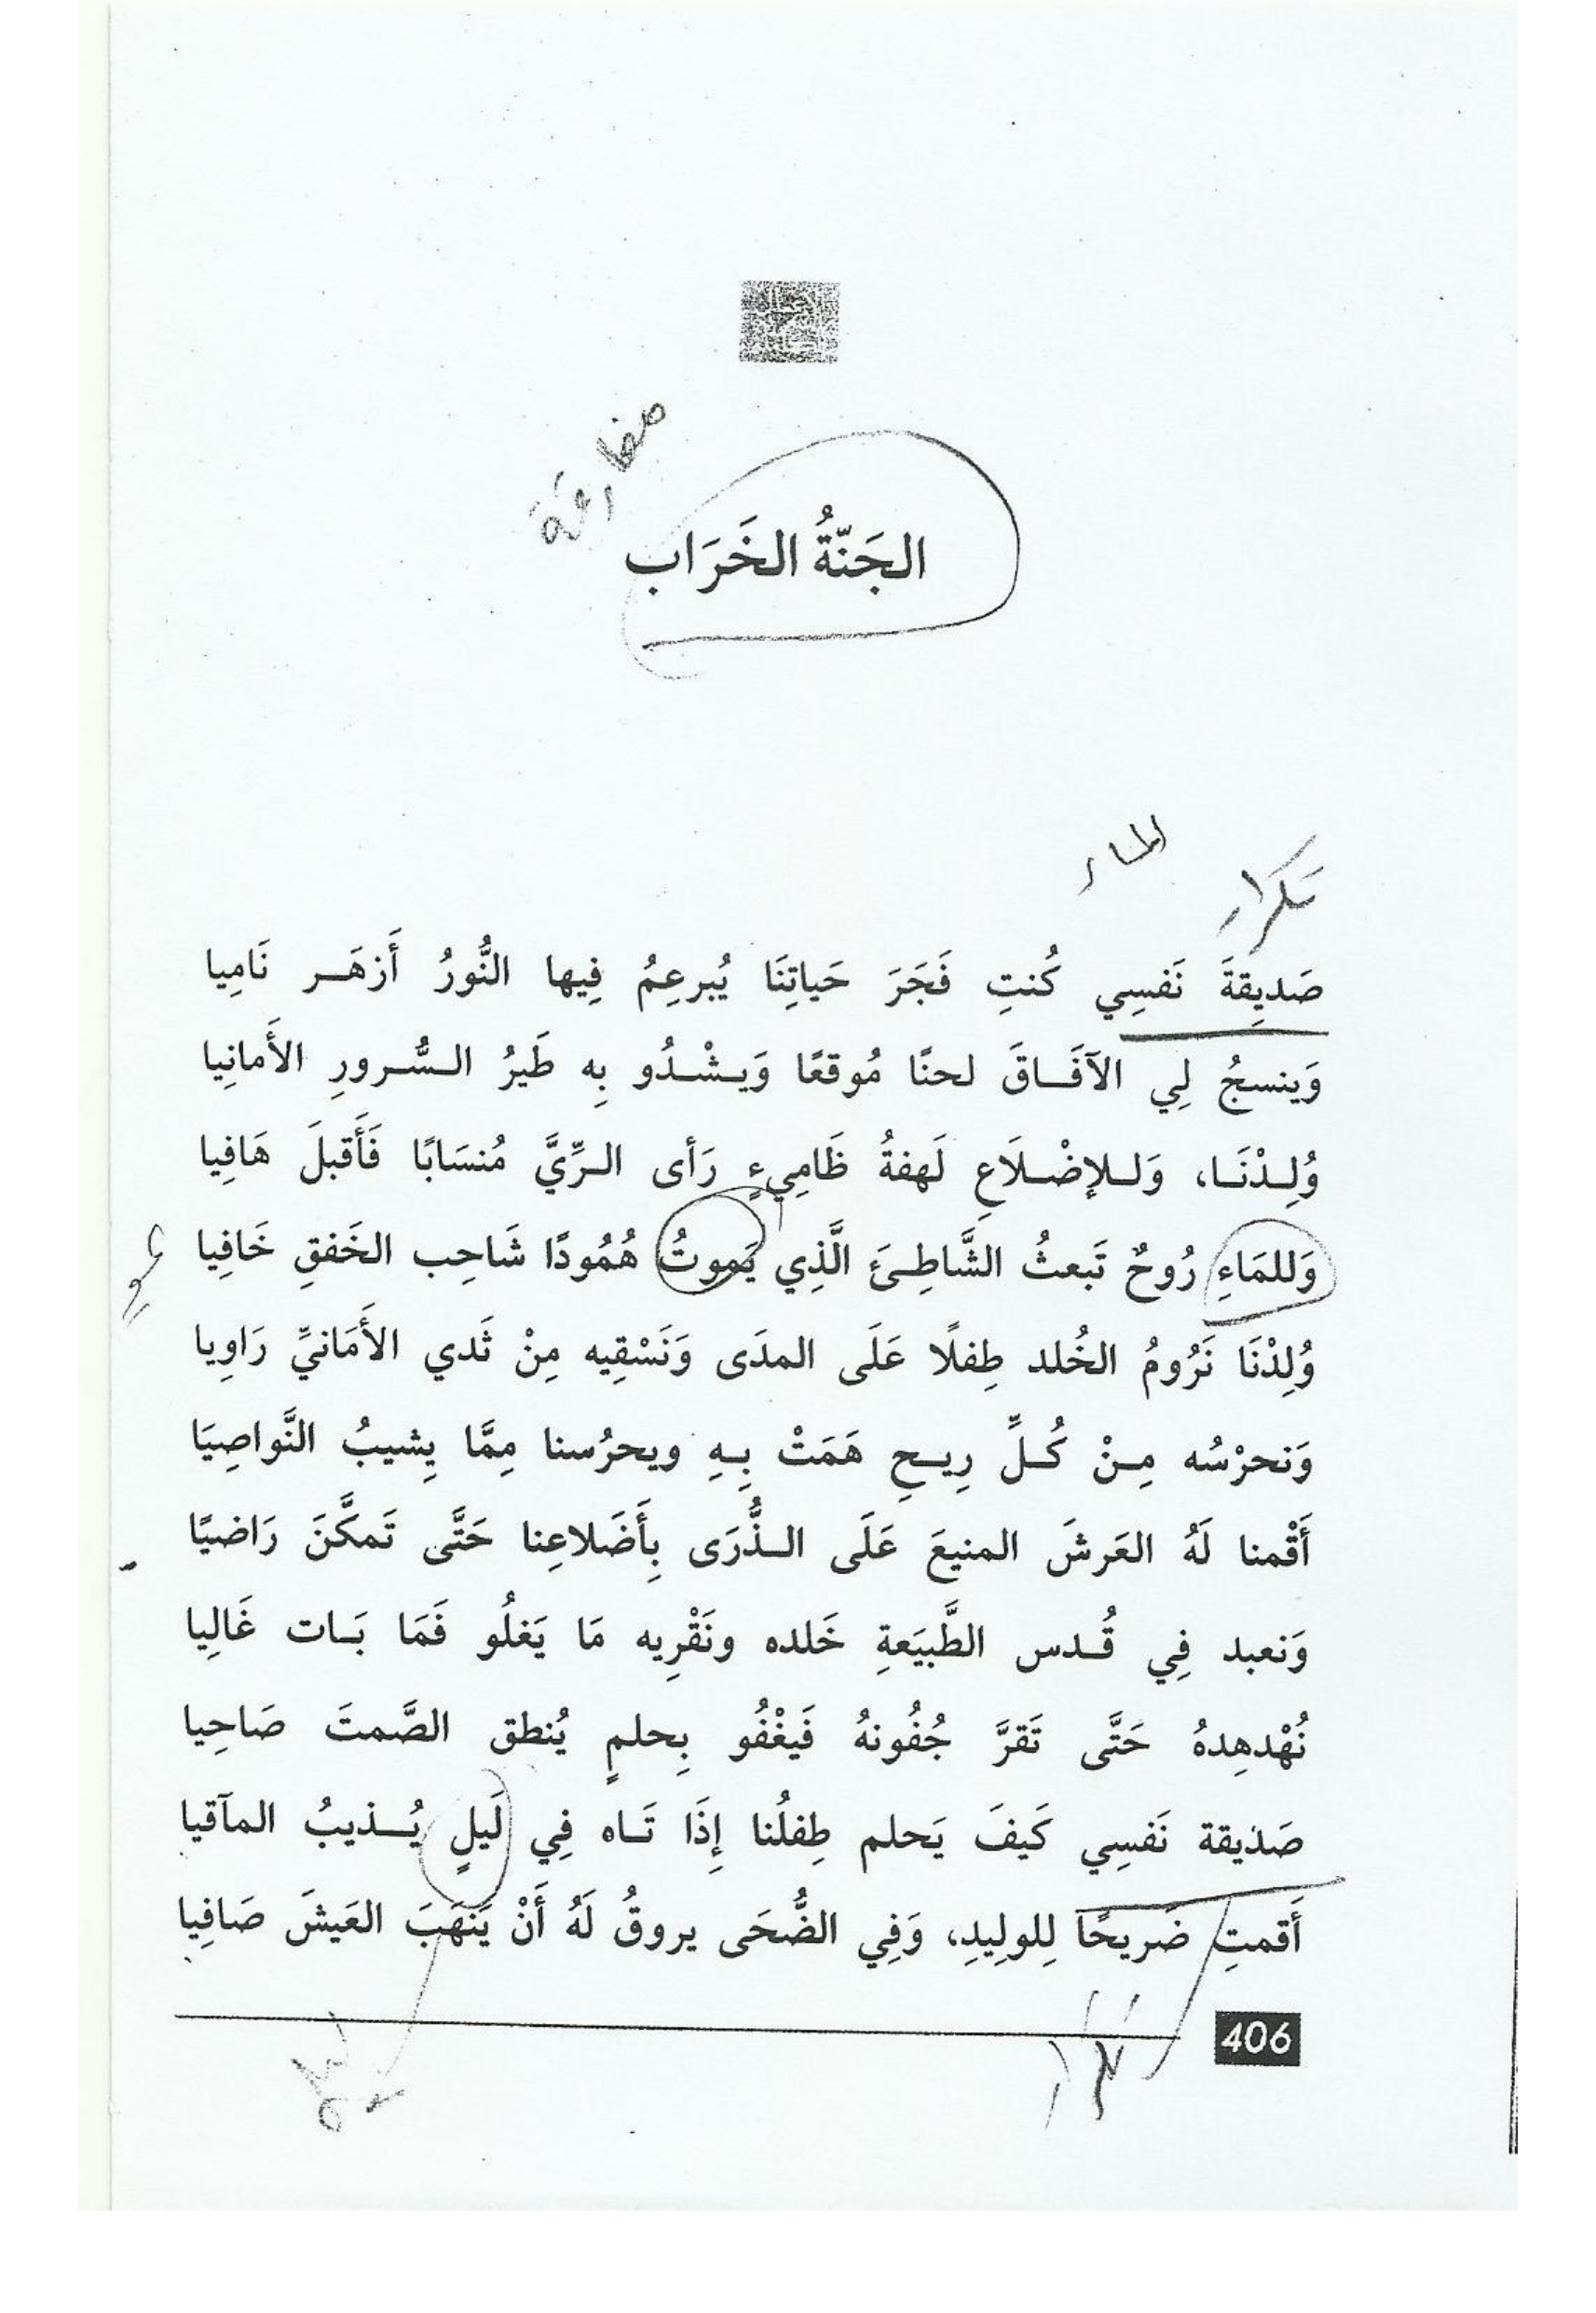 مفارقة
الجَنّةُ الخَرَاب
الماء
تكرار
صَديِقةَ نَفسِي كُنتِ فَجَرَ حَياتِنَا يُبرعِمُ فِيها النُّورُ أَزهَـــر نَامِيا
وَينسجُ لِي الآفَـــاقَ لحنًا مُوقعًا وَيــشْــدُو بِه طَيرُ الــسُّــرورِ الأَمانِيا
وُلِــدْنَــا، وَلــلإضْــلَاعِ لَهفةُ ظَامِيءٍ رَأى الــرِّيَّ مُنسَابًا فَأَقبلَ هَافِيا
وَللمَاءِ رُوحٌ تَبعثُ الشَّاطِــئَ الَّذِي يَموتُ هُمُودًا شَاحِب الخَفقِ خَافِيا
وُلِدْنَا نَرُومُ الخُلد طِفلًا عَلَى المدَى وَنَسْقِيه مِنْ ثَدي الأَمَانيِّ رَاوِيا
وَنحرْسُه مِــنْ كُــلِّ رِيــحِ هَمَتْ بِــهِ ويحرُسنا مِمَّا يِشيبُ النَّواصِيَا
أَقْمنا لَهُ العَرشَ المنيعَ عَلَى الــذُّرَى بِأَضَلاعِنا حَتَّى تَمكَّنَ رَاضيًا
وَنعبد فِي قُــدس الطَّبيَعةِ خَلده ونَقْرِيه مَا يَغلُو فَمَا بَــات غَالِيا
نُهْدهِدهُ حَتَّى تَقرَّ جُفُونهُ فَيغْفُو بِحلمٍ يُنطق الصَّمتَ صَاحِيا
صَديقة نَفسِي كَيفَ يَحلم طِفلُنا إِذَا تَــاه فِي لَيلٍ يُــــذيبُ المآقيا
أَقمتِ ضَريحًا لِلولِيدِ، وَفِي الضُّحَى يروقُ لَهُ أَنْ يَنهَبَ العَيشَ صَافِيا
تكرار
406